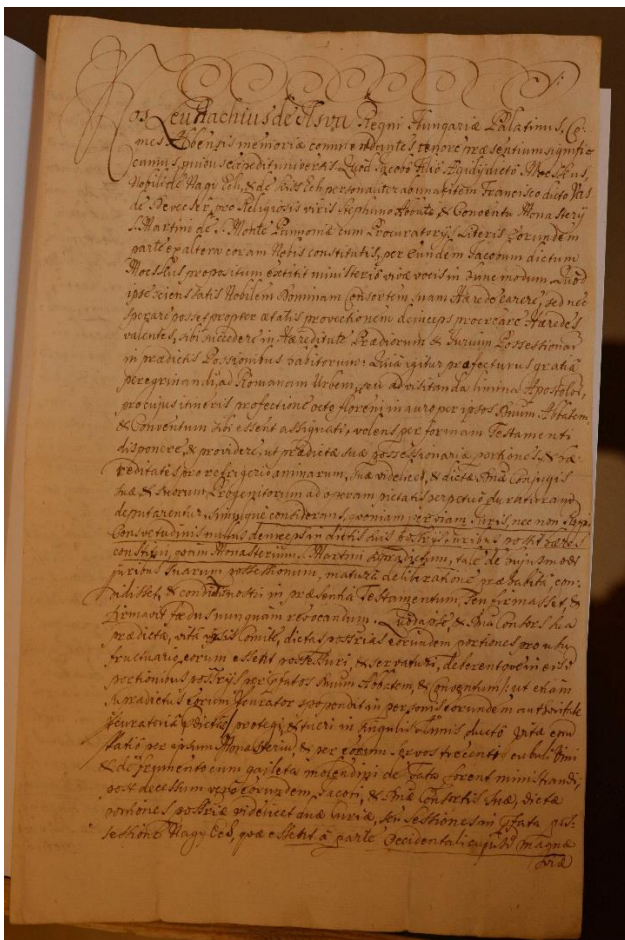 Nos Leustachius de Ilsva Regni Hungariæ Palatinus, Co
mes Abbensis memoriæ commendantes tenore præsentium signifi
camus, quibus expedit universis. Quod Jacobo filio Ægidij dicto Moesskus,
Nobili de Nagy Ech, & de Kiss Ech personaliter ab una, item Francisco dicto Vas
de Devecser pro Religiosis viris Stephano Abbate, & Conventu Monasterij
S. Martini de S. Monte Pannoniæ cum Procuratorijs Literis eorundem
parte ex altera coram Nobis constitutis, per eundem Jacobum dictum
Moesskus propositum extitit ministerio vivæ vocis in hunc modum. Quod
ipse sciens statis Nobilem Dominam Consortem suam Hærede carere, sed nec
sperare posse propter ætatis provectionem deinceps procreare Hæredes
valentes, sibi succedere in Hæreditate Prædiorum & Jurium Possessionar
in prædictis Possessionibus habitorum: Quia igitur profecturus gratia
peregrinandi, ad Romanam Urbem, seu ad visitanda limina Apostolor,
pro cujus itineris profectione octo floreni in auro per ipsos Dnum Abbatem,
& Conventum sibi essent assignati, volens per formam Testamenti
disponere, & providere, ut prædictæ suæ possessionariæ portiones, & hæ
reditates pro refrigerio animarum, suæ videlicet, & dictæ Dnæ Conjugis
suæ, & suorum Progenitorum ad operam pietatis perpetuo duraturam
deputarentur. Simulque considerans, quoniam per viam Juris, nec non Regni
Consvetudinis nullus deinceps in dictis suis possrijs juribus posset hæres
constitui, quam Monasterium S. Martini supradictum, tale de hujusmodi
juribus suarum possessionum, matura deliberatione præhabita con
didisset, & condidit nostri in præsentia Testamentum, seu firmasset, &
firmavit fœdus nunquam revocandum. Quod ipse, & Dna Consors sua
prædicta, vita ipsis Comite, dictas possrias eorundem portiones pro usu
fructuario eorum essent possessuri, & servaturi, deberentque in eisd
portionibus possrijs per Pfatos Dnum Abbatem, & Conventum /: ut etiam
supradictus eorum Pcurator spopondit in personis eorundem authoritate
Pcuratoria Pdicta :/ protegi, & tueri in singulis Annis ducto vitæ eorum
spatio per ipsum Monasterium, & per eorum servos trecenti cubuli Vini
& de frumento cum galleta molendini de Fato forent ministrandi,
post decessum vero eorundem Jacobi, & Dnæ Consortis suæ, dictæ
portiones possriæ videlicet duæ Curiæ, seu sessiones in Pfata pos-
sessione Nagy Ech, quæ essent à parte Occidentali cujusd magnæ
viæ